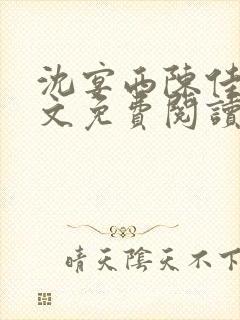 沈宴西陳佳
文免費閱讀
晴天陰天不下